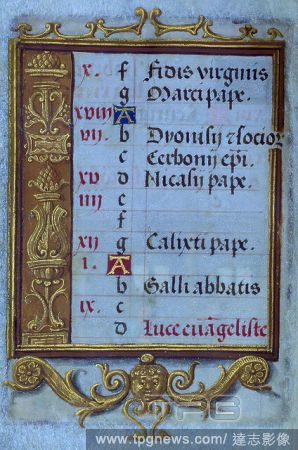 x. f Fidis virginis
g Marci pape.
xviii A
vii. b Dyonisii ⁊ socior
c Cerbonii ep̄i.
xv d Nicasii pape.
iiii e
f
xii g Calixti pape.
i. A
b Galli abbatis
ix. c
d Luce euãgeliste
TPG
www.tpgnews.com/ 達志影像